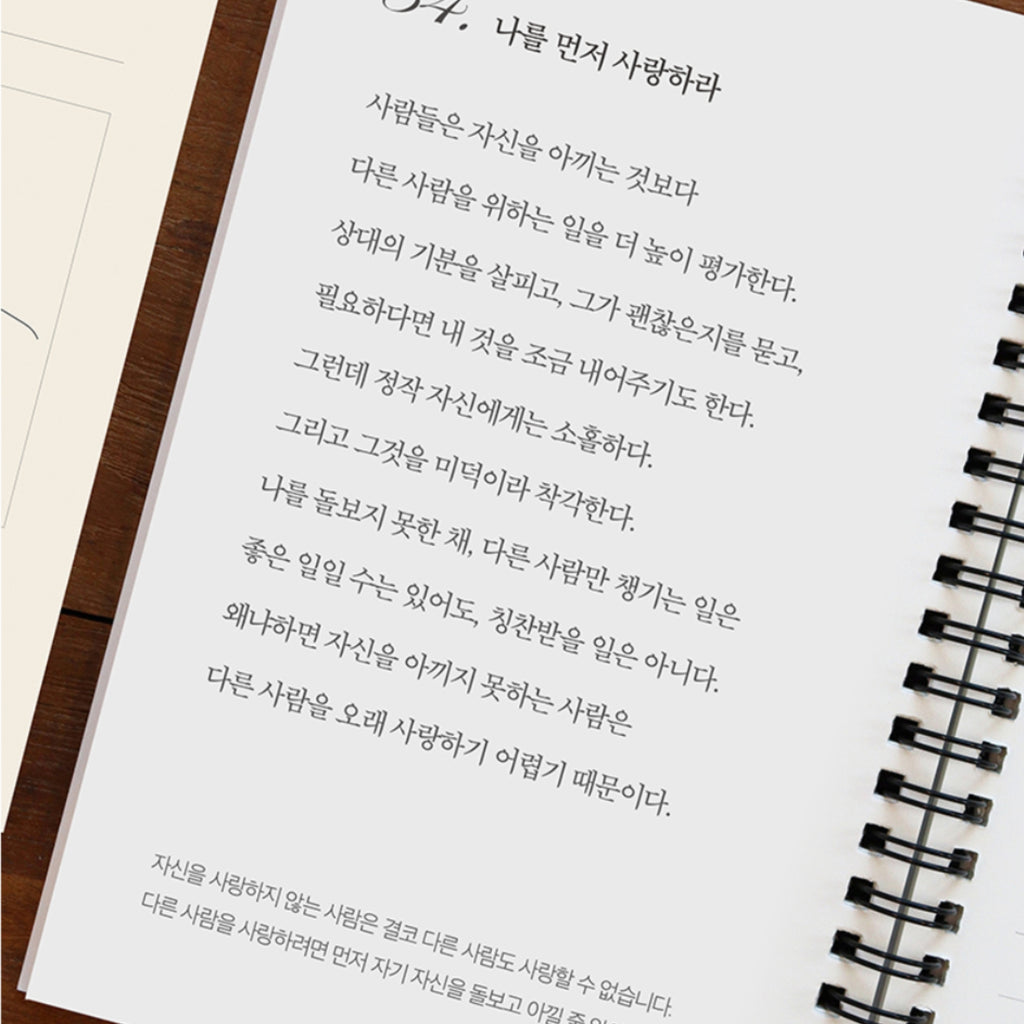 34. 나를 먼저 사랑하라
사람들은 자신을 아끼는 것보다
다른 사람을 위하는 일을 더 높이 평가한다.
상대의 기분을 살피고, 그가 괜찮은지를 묻고,
필요하다면 내 것을 조금 내어주기도 한다.
그런데 정작 자신에게는 소홀하다.
그리고 그것을 미덕이라 착각한다.
나를 돌보지 못한 채, 다른 사람만 챙기는 일은
좋은 일일 수는 있어도, 칭찬받을 일은 아니다.
왜냐하면 자신을 아끼지 못하는 사람은
다른 사람을 오래 사랑하기 어렵기 때문이다.
자신을 사랑하지 않는 사람은 결코 다른 사람도 사랑할 수 없습니다.
다른 사람을 사랑하려면 먼저 자기 자신을 돌보고 아낄 줄